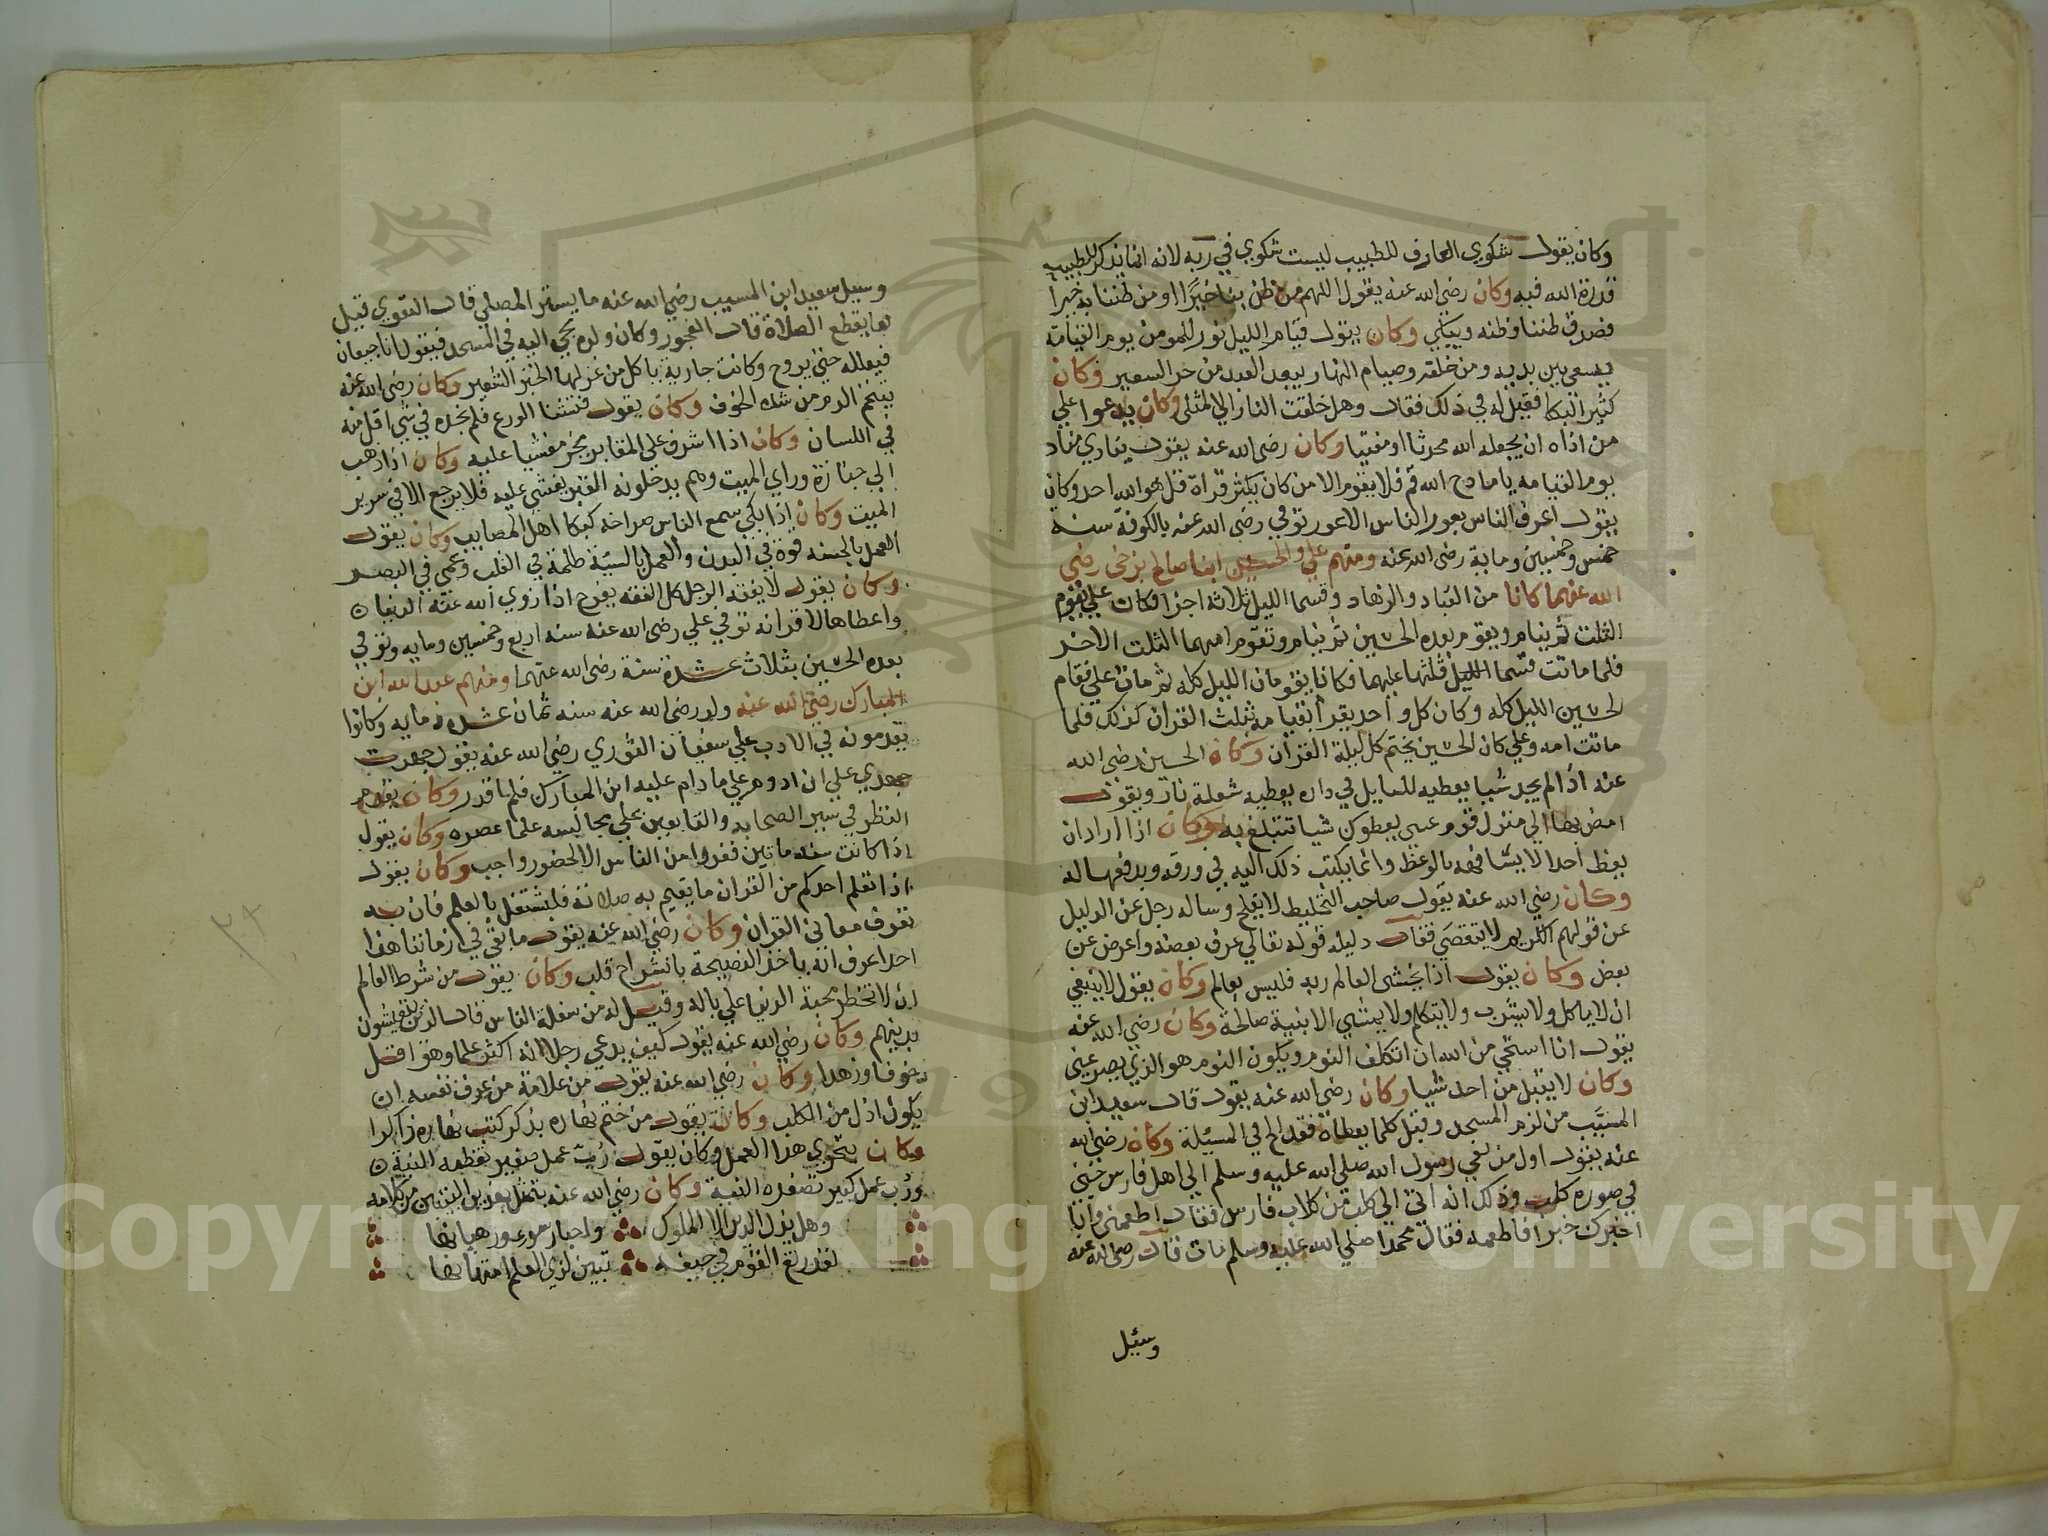 وكان يقول شكوي العارف للطبيب ليست شكوي في ربه لانه انما يذكر للطبيب
قدرة الله فيه وكان رضي الله عنه يقول اللهم من ظن بنا خيرًا او من ظننا به خيرا
فصدق ظننا وظنه ويبكي وكان يقول قيام الليل نور للمومن يوم القيامة
يسعي بين يديه ومن خلفه وصيام النهار يبعد العبد من حر السعير وكان
كثير البكا فقيل له في ذلك فقال وهل خلقت النار الا لمثلي وكان يدعوا علي
من اذاه ان يجعله الله محدثا او مفتيا وكان رضي الله عنه يقول ينادي مناد
يوم القيامه يا مادح الله قم فلا يقوم الا من كان يكثر قراة قل هو الله احد وكان
يقول اعرف الناس بعور الناس الاعور توفي رضي الله عنه بالكوفة سنة
خمس وخمسين وماية رضي الله عنه ومنهم علي والحسين ابنا صالح بن حي رضي
الله عنهما كانا من العباد والزهاد وقسما الليل ثلاثة اجزا فكان علي يقوم
الثلث ثم ينام ويقوم بعده الحسين ثم ينام وتقوم امهما الثلث الاخر
فلما ماتت قسما الليل ثلثها عليهما فكانا يقومان الليل كله ثم مات علي فقام
الحسين الليل كله وكان كل واحد يقرأ بقيامه ثلث القران كذلك فلما
ماتت امه وعلي كان الحسين يختم كل ليلة القران وكان الحسين رضي الله
عنه اذا لم يجد شيا يعطيه للسايل في داره يعطيه شعلة نار ويقول
امض بها الي منزل قوم عسي يعطوك شيا تتبلغ به وكان اذا اراد ان
يعظ احدا لا يشافهه بالوعظ وانما يكتب ذلك اليه في ورقه ويدفعها له
وكان رضي الله عنه يقول صاحب التخليط لا يفلح وساله رجل عن الدليل
عن قولهم الكريم لا يتقصي فقال دليله قوله تعالي عرف بعضه واعرض عن
بعض وكان يقول اذا لم يخشى العالم ربه فليس بعالم وكان يقول لا ينبغي
ان لا ياكل ولا يشرب ولا يتكلم ولا يمشي الا بنية صالحة وكان رضي الله عنه
يقول انا استحي من الله ان اتكلف النوم ويكون النوم هو الذي يصرعني
وكان لا يقبل من احد شيا وكان رضي الله عنه يقول قال سعيد ابن
المسيَّب من لزم المسجد وقبل كلما يعطاه فقد الح في المسئلة وكان رضي الله
عنه يقول اول من نعي رسول الله صلي الله عليه وسلم الي اهل فارس جني
في صوره كلب وذلك انه اتى الى كلب من كلاب فارس فقال اطعمني وانا
اخبرك خبرا فاطعمه فقال محمدا صلي الله عليه وسلم مات قال رضي الله عنه
وسئيل
وسيل سعيد ابن المسيب رضي الله عنه ما يستر المصلي قال التقوي قيل
فما يقطع الصلاة قال الفجور وكان ولده يجي اليه في المسجد فيقول انا جيعان
فيعلله حتي يروح وكانت جارية ياكل من غزلها الخبز الشعير وكان رضي الله عنه
يتنخم الدم من شده الخوف وكان يقول فتشنا الورع فلم نجده في شي اقل منه
في اللسان وكان اذا اشرف علي المقابر يخر مغشيا عليه وكان اذا ذهب
الي جنازة وراي الميت وهم يدخلونه القبر يغشي عليه فلا يرجع الا في سرير
الميت وكان اذا بكي سمع الناس صراخه كبكا اهل المصايب وكان يقول
العمل بالحسنه قوة في البدن والعمل بالسيئة ظلمة في القلب وعمي في البصر
وكان يقول لا يفقه الرجل كل الفقه يفرح اذا زوي الله عنه الدنيا
واعطاها لاقرانه توفي علي رضي الله عنه سنه اربع وخمسين ومايه وتوفي
بعده الحسين بثلاث عشرة سنة رضي الله عنهما ومنهم عبد الله ابن
المبارك رضي الله عنه ولد رضي الله عنه سنه ثمان عشره ومايه وكانوا
يقدمونه في الادب علي سفيان الثوري رضي الله عنه يقول جهدت
جهدي علي ان ادوم علي ما دام عليه ابن المبارك فلم اقدر وكان يقدم
النظر في سير الصحابه والتابعين علي مجالسه علما عصره وكان يقول
اذا كانت سنه ماتين ففروا من الناس الا لحضور واجب وكان يقول
اذا تعلم احدكم من القران ما يقيم به صلاته فليشتغل بالعلم فان به
تعرف معاني القران وكان رضي الله عنه يقول ما بقي في ازماننا هذا
احد اعرف انه ياخذ النصيحة بانشراح قلب وكان يقول من شرط العالم
ان لا تخطر محبة الدنيا علي باله وقيل له من سفلة الناس قال الذين يتعيشون
بدينهم وكان رضي الله عنه يقول كيف يدعي رجل انه اكثر علما وهو اقل
خوفا وزهدا وكان رضي الله عنه يقول من علامة من عرف نفسه ان
يكون اذل من الكلب وكان يقول من ختم نهاره بذكر كتب نهاره ذاكرا
وكان يتحري هذا العمل وكان يقول رُبّ عمل صغير تعظمه النية
ورُب عمل كبير تصغره النية وكان رضي الله عنه يتمثل بهذين البيتين من كلامه
وهل بدل الدين الا الملوك واحبار سوء ورهبانها
لقد رتع القوم في جيفه تبين لذي العلم انتانها
Copyright © King Saud University
1957